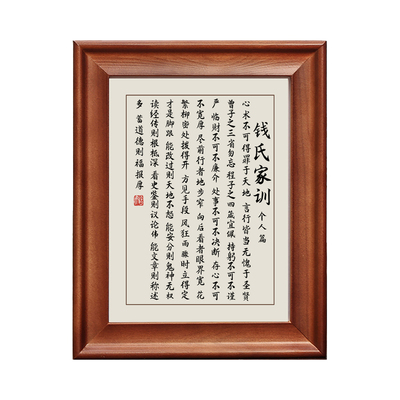 钱氏家训 个人篇
心术不可得罪于天地 言行皆当无愧于圣贤
曾子之三省勿忘 程子之四箴宜佩 持躬不可不谨
严 临财不可不廉介 处事不可不决断 存心不可
不宽厚 尽前行者地步窄 向后看者眼界宽 花
繁柳密处拨得开 方见手段 风狂雨骤时立得定
才是脚跟 能改过则天地不怒 能安分则鬼神无权
读经传则根柢深 看史鉴则议论伟 能文章则称述
多 蓄道德则福报厚